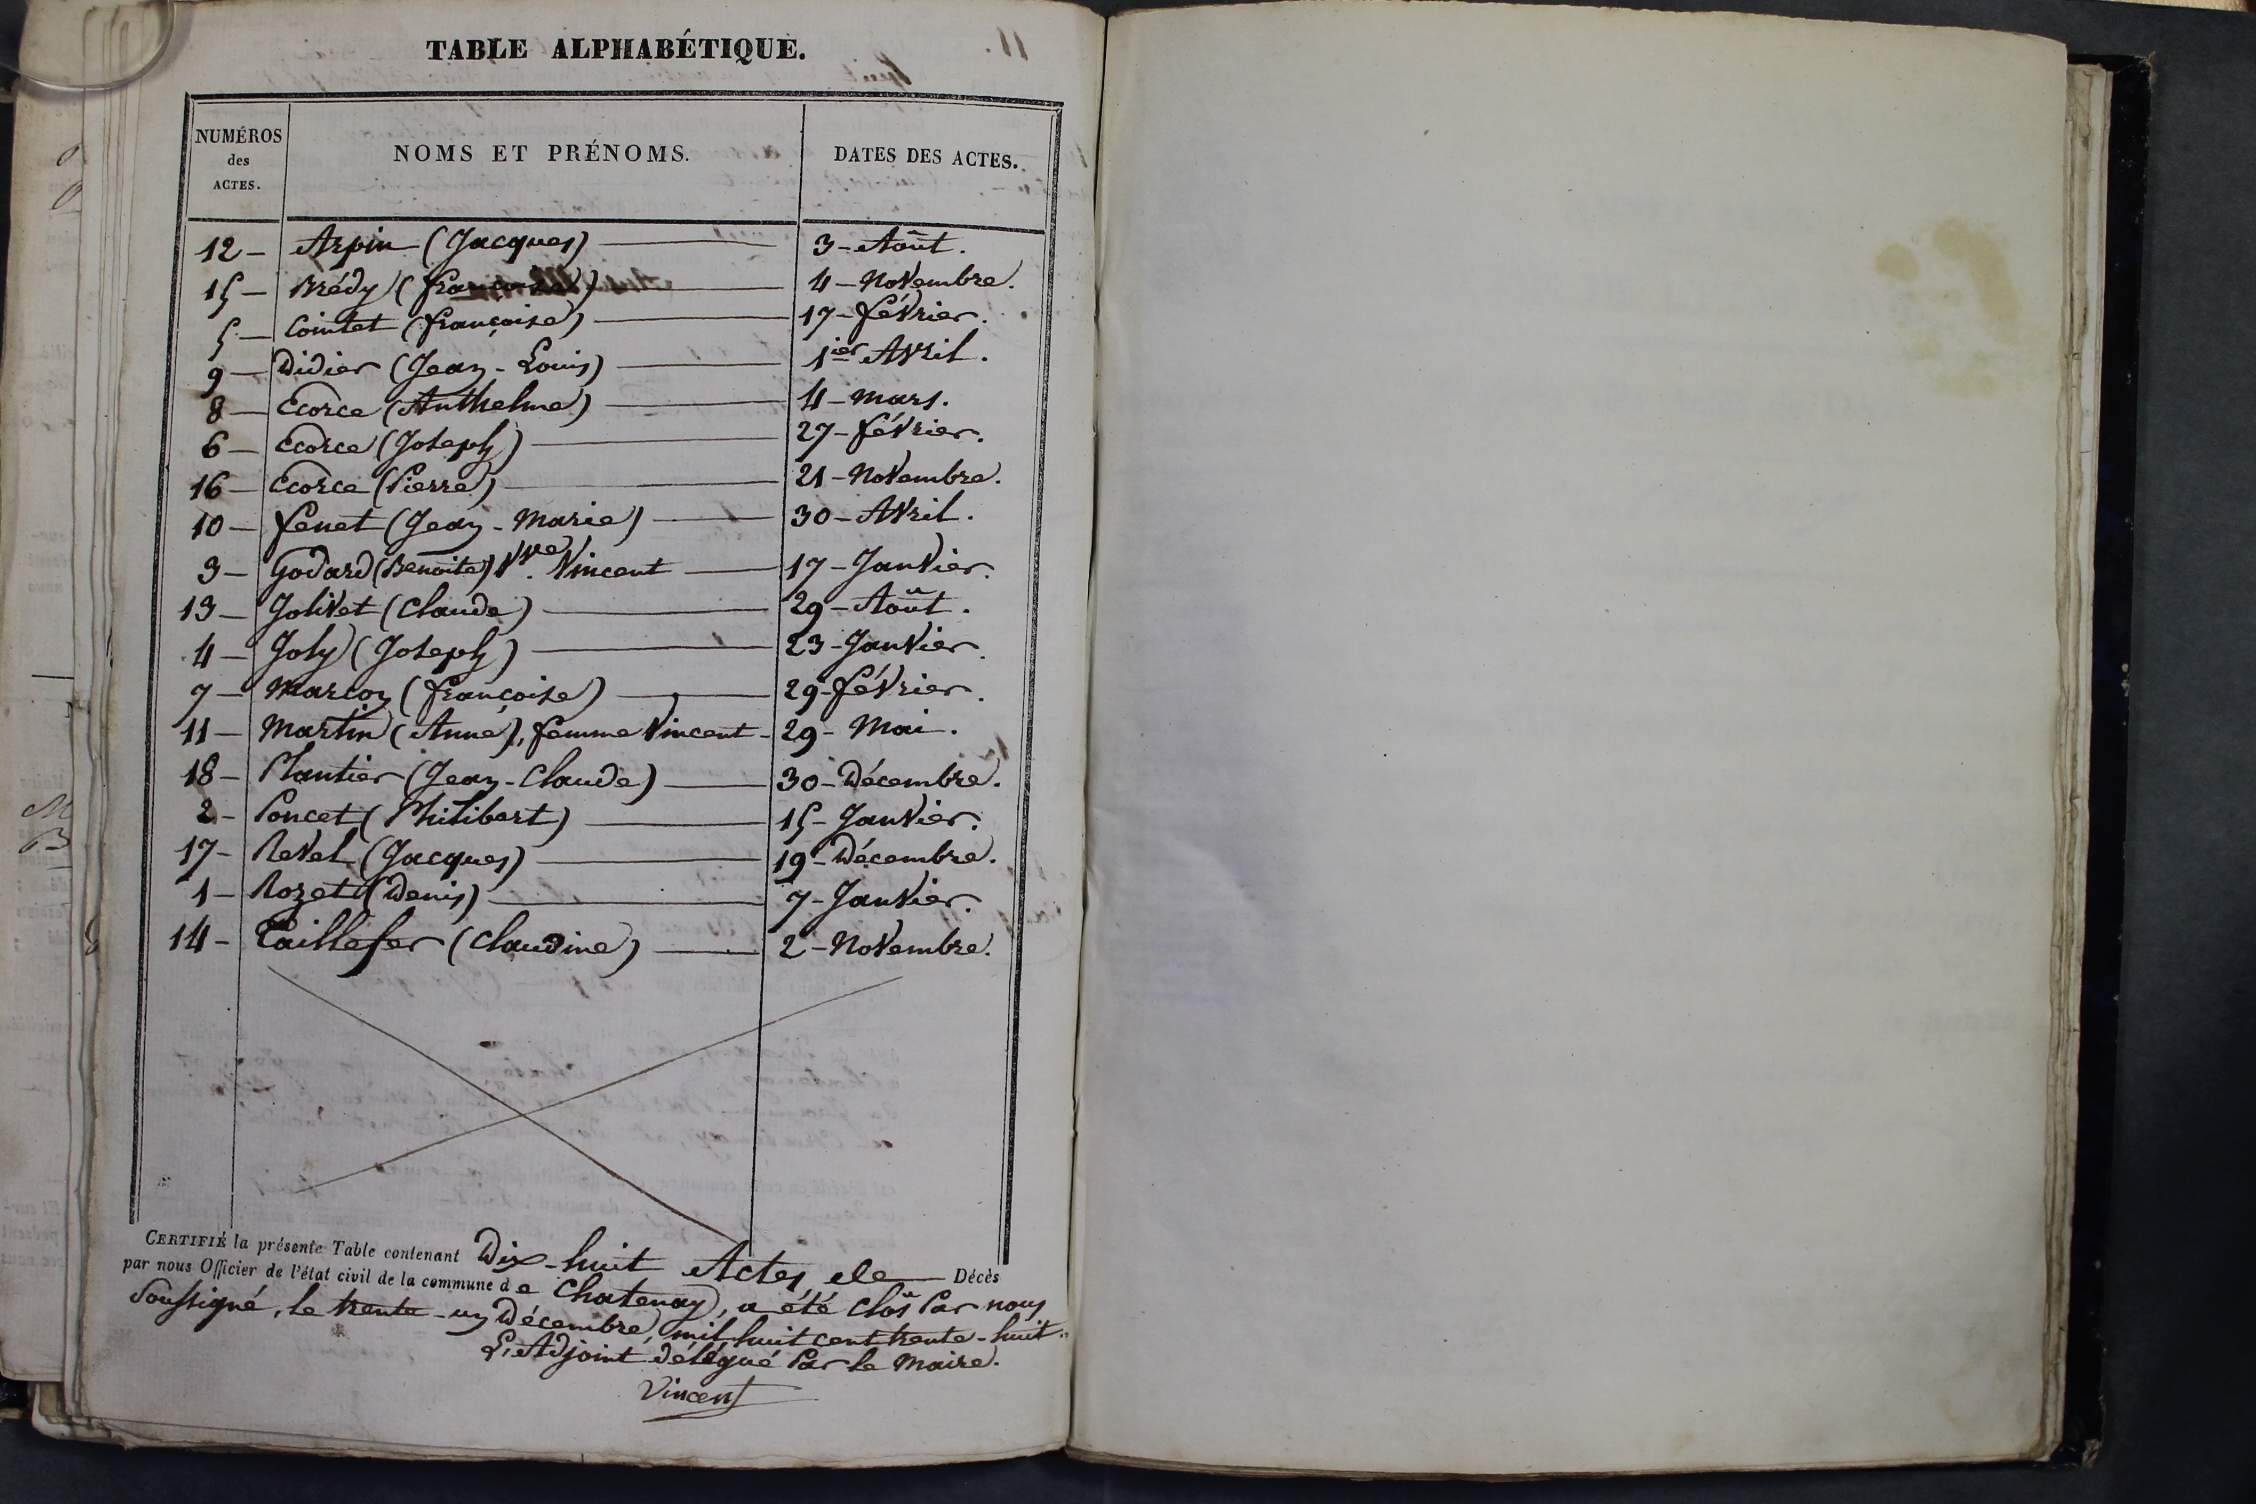 TABLE ALPHABÉTIQUE.
NUMÉROS des ACTES. NOMS ET PRÉNOMS. DATES DES ACTES.
12 - Arpin (Jacques) 3 - Août.
15 - Brédy (françoise) 4 - Novembre.
5 - Cointet (françoise) 17 - février.
9 - Didier (Jean - Louis) 1ier Avril.
8 - Ecorce (Anthelme) 4 - mars.
6 - Ecorce (Joseph) 27 - février.
16 - Ecorce (Pierre) 21 - Novembre.
10 - fenet (Jean - Marie) 30 - Avril.
3 - Godard (Benoite) Vve. Vincent 17 - Janvier.
13 - Jolivet (Claude) 29 - Août.
4 - Joly (Joseph) 23 - Janvier.
7 - Marcon (françoise) 29 - février.
11 - Martin (Anne), femme Vincent - 29 - Mai.
18 - Plantier (Jean - Claude) 30 - Décembre.
2 - Poncet (Philibert) 15 - Janvier.
17 - Revel (Jacques) 19 - Décembre.
1 - Rozet (Denis) 7 - Janvier.
14 - Taillefer (Claudine) 2 - Novembre.
CERTIFIÉ la présente Table contenant Dix-huit Actes de Décès
par nous Officier de l'état civil de la commune de Chatenay, a été clos Par nous
Soussigné, le trente-un Décembre, mil huit cent trente-huit.
L'Adjoint délégué Par le Maire.
Vincent